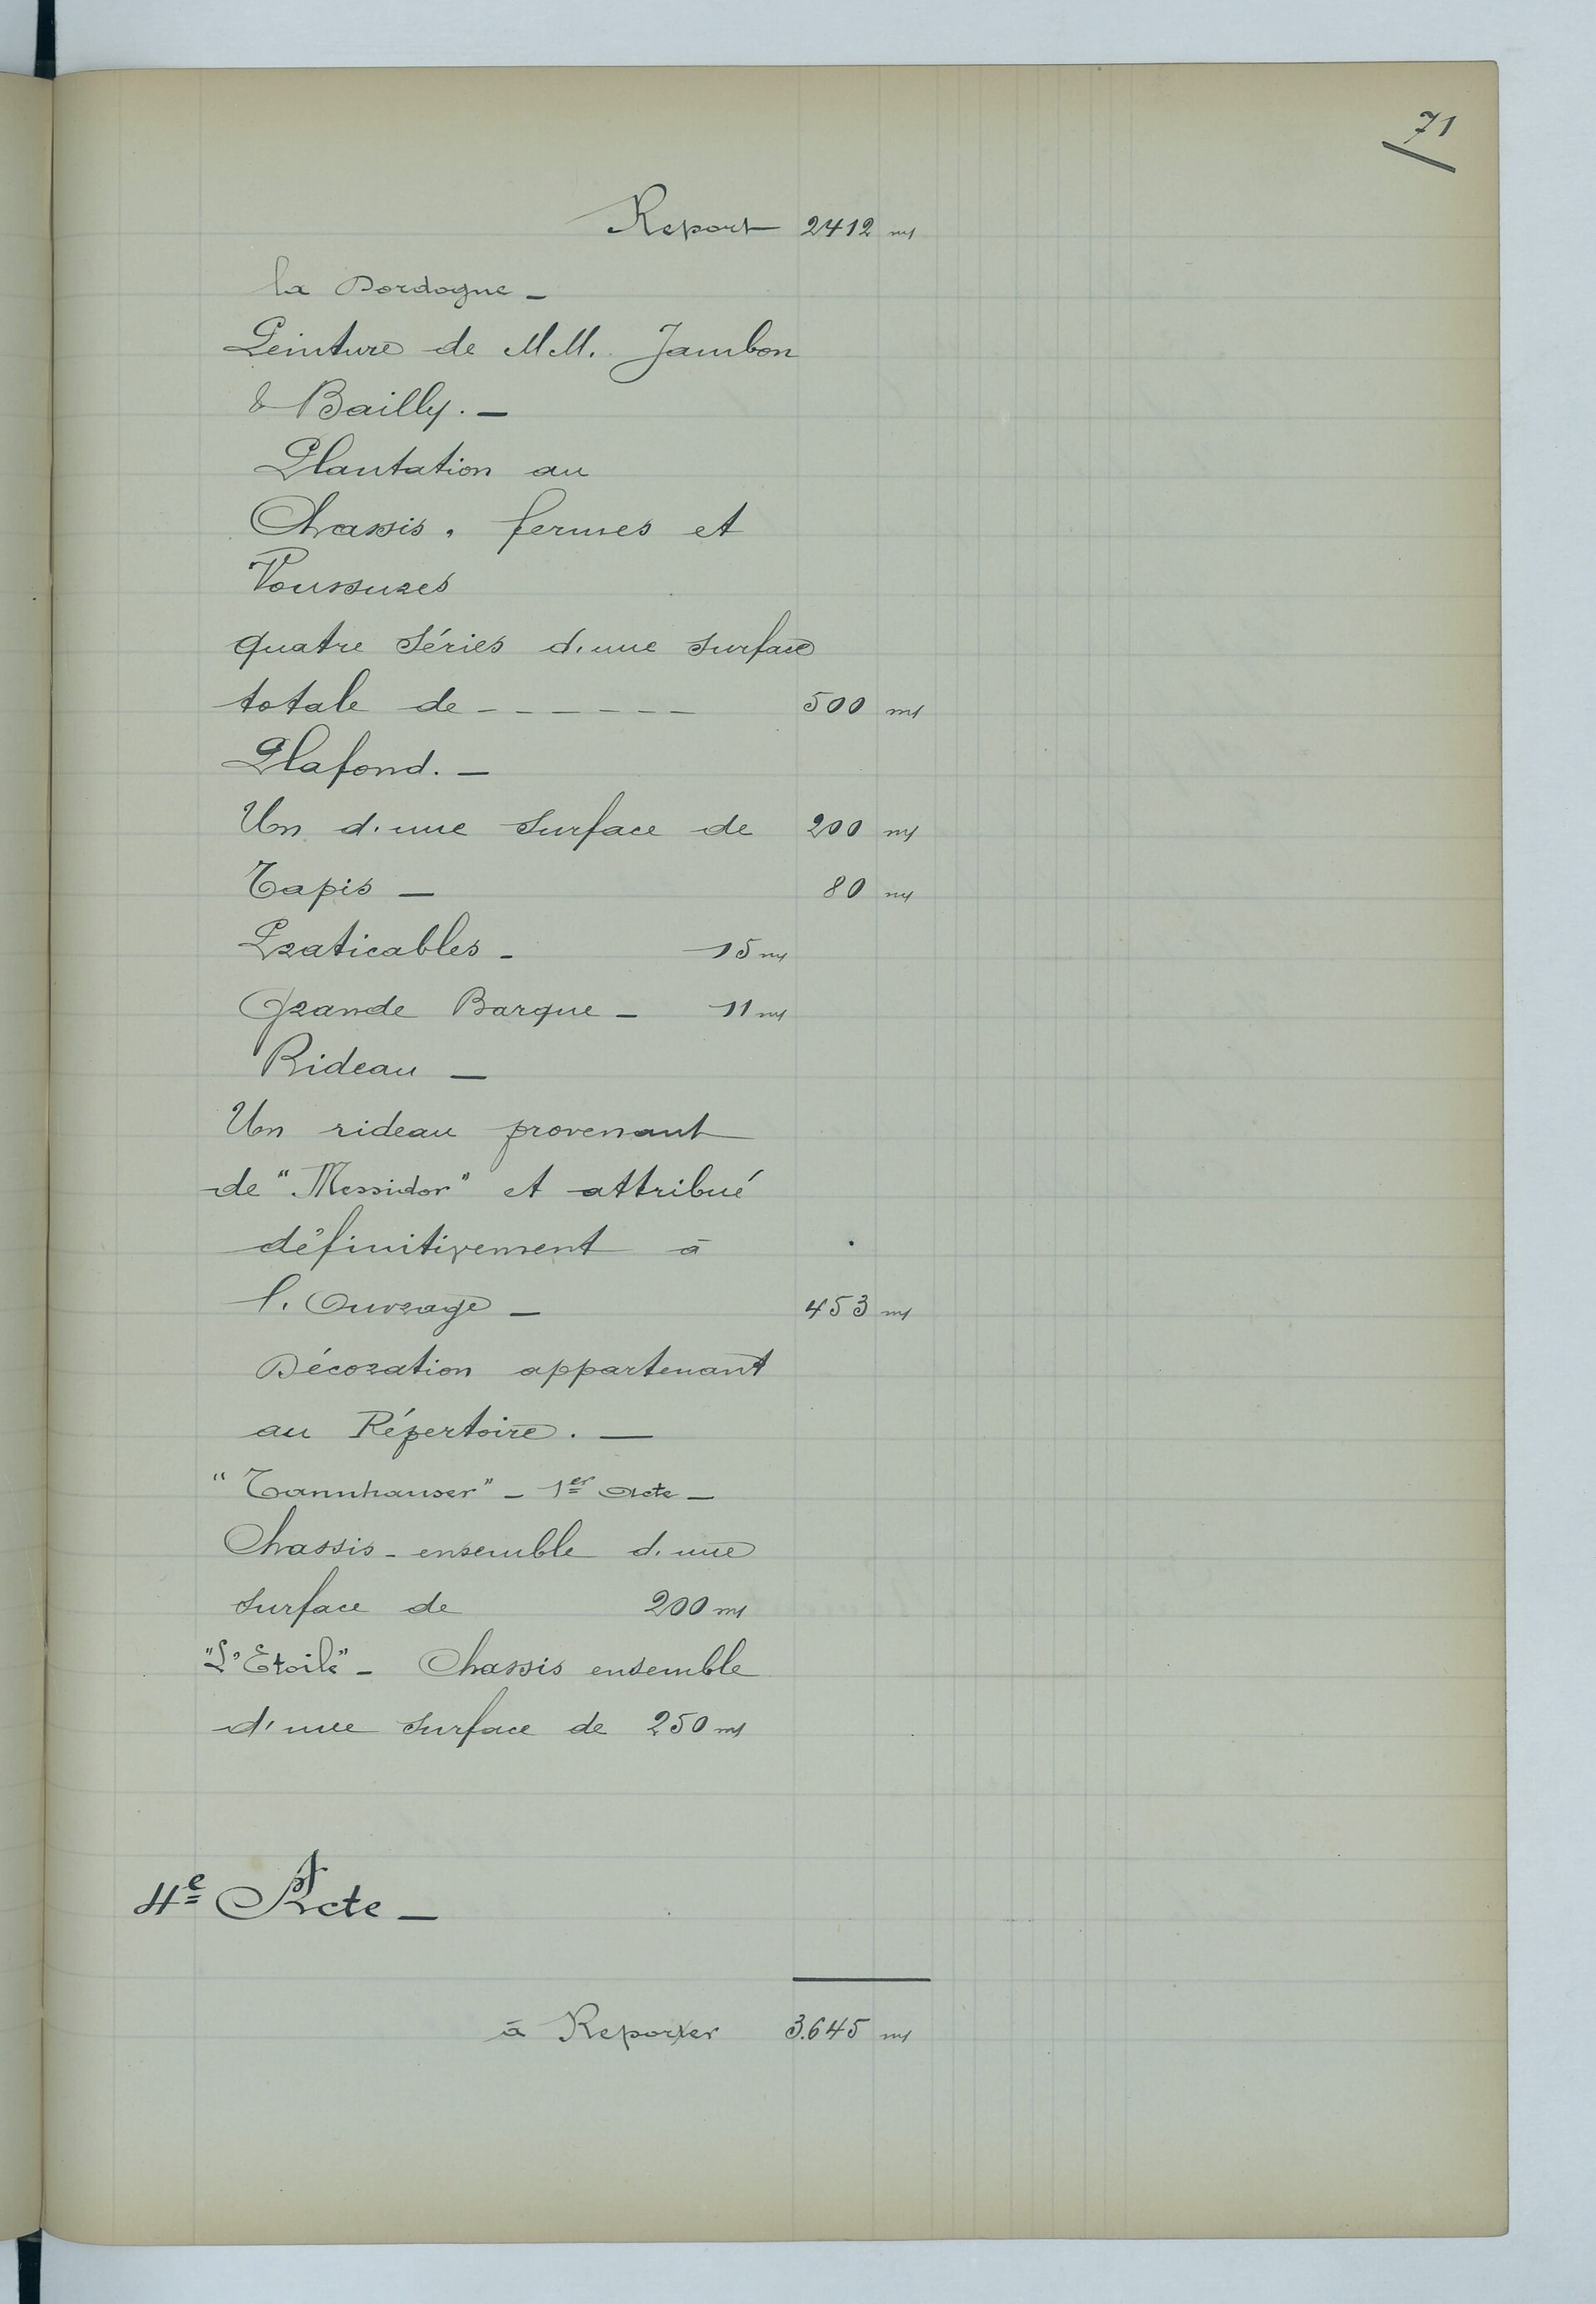 71
Report 2412 m
la Dordogne _
Peinture de MM. Jambon
& Bailly. _
Plantation au
Chassis, fermes et
Voussures
quatre séries d'une surface
totale de - - - - - - - 500 m
Plafond. _
Un d'une surface de 200 m
Tapis _ 80 m
Praticables - 15 m
Grande Barque - 11 m
Rideau _
Un rideau provenant
de "Messidor" et attribué
définitivement à
l'Ouvrage _ 453 m
Décoration appartenant
au Répertoire. _
"Tannhauser" - 1er Acte _
Chassis - ensemble d'une
surface de 200 m
"L'Etoile" - Chassis ensemble
d'une surface de 250 m
4e Acte _
à Reporter 3.645 m